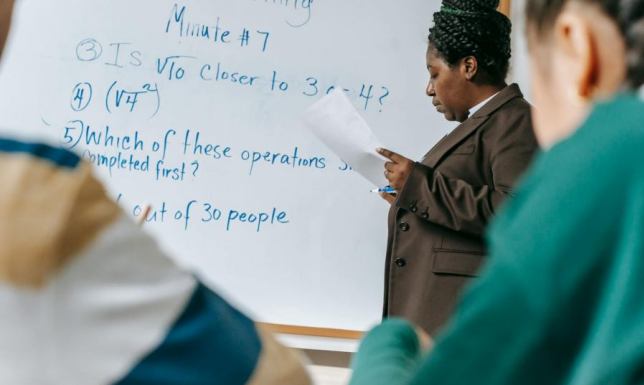 Minute #7
③ Is √10 closer to 3 or 4?
④ (√4²)
5) Which of these operations
completed first?
out of 30 people